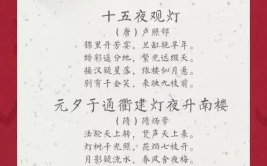 十五夜观灯
（唐）卢照邻
锦里开芳宴，兰缸艳早年。
缛彩遥分地，繁光远缀天。
接汉疑星落，依楼似月悬。
别有千金笑，来映九枝前。
元夕于通衢建灯夜升南楼
（隋）隋炀帝
法轮天上转，梵声天上来。
灯树千光照，花焰七枝开。
月影疑流水，春风含夜梅。